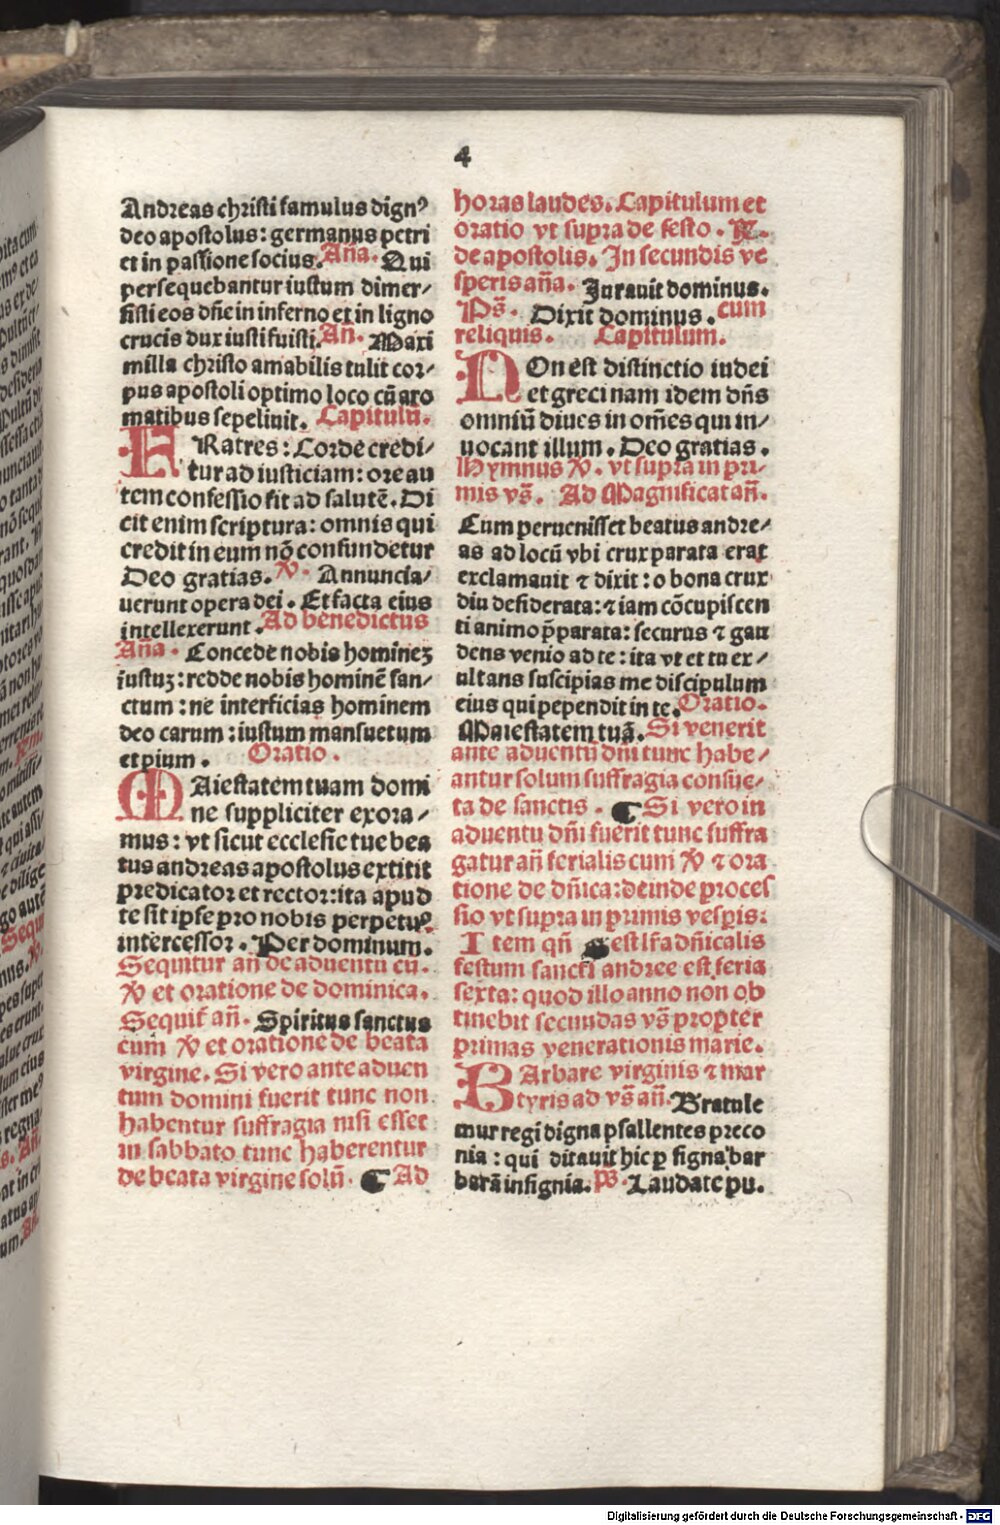 4
Andreas christi famulus dignꝰ
deo apostolus: germanus petri
et in passione socius. Añа. Qui
persequebantur iustum dimer/
sisti eos dñe in inferno et in ligno
crucis dux iusti fuisti. An̄. Maxi
milla christo amabilis tulit cor/
pus apostoli optimo loco cū aro
matibus sepelivit. Capitulū.
FRatres: Corde credi/
tur ad iusticiam: ore au
tem confessio fit ad salutē. Di
cit enim scriptura: omnis qui
credit in eum nō confundetur
Deo gratias. ℣. Annuncia/
uerunt opera dei. Et facta eius
intellexerunt. Ad benedictus
Aña. Concede nobis homineʒ
iustuʒ: redde nobis hominē san/
ctum: ne interficias hominem
deo carum: iustum mansuetum
et pium. Oratio.
MAiestatem tuam domi
ne suppliciter exora/
mus: vt sicut ecclesie tue bea
tus andreas apostolus extitit
predicator et rector: ita apud
te sit ipse pro nobis perpetuꝰ
intercessor. Per dominum.
Sequitur an̄ de aduentu cū.
℣ et oratione de dominica.
Sequit᷑ an̄. Spiritus sanctus
cum ℣ et oratione de beata
virgine. Si vero ante aduen
tum domini fuerit tunc non
habentur suffragia nisi esset
in sabbato tunc haberentur
de beata virgine solū. ¶ Ad
horas laudes. Capitulum et
oratio vt supra de festo. ℞.
de apostolis. In secundis ve
speris aña. Iurauit dominus.
Ps̄. Dixit dominus. cum
reliquis. Capitulum.
NOn est distinctio iudei
et greci nam idem dñs
omniū diues in om̄es qui in/
uocant illum. Deo gratias.
Hymnus ℣. vt supra in pri/
mis vs̄. Ad Magnificat an̄.
Cum peruenisset beatus andre/
as ad locū vbi crux parata erat
exclamauit ⁊ dixit: o bona crux
diu desiderata: ⁊ iam cōcupiscen
ti animo p̄parata: securus ⁊ gau
dens venio ad te: ita vt et tu ex/
ultans suscipias me discipulum
eius qui pependit in te. Oratio.
Maiestatem tuā. Si venerit
ante aduentū dñi tunc habe/
antur solum suffragia consue/
ta de sanctis. ¶ Si vero in
aduentu dñi fuerit tunc suffra
gatur an̄ ferialis cum ℣ ⁊ ora
tione de dñica: deinde proces
sio vt supra in primis vesp̄is:
Item qn̄ g est lr̄a dñicalis
festum sancti andree est feria
sexta: quod illo anno non ob
tinebit secundas vs̄ propter
primas venerationis marie.
BArbare virginis ⁊ mar
tyris ad vs̄ an̄. Gratule
mur regi digna psallentes preco
nia: qui ditauit hic ꝑ signa bar
barā insignia. ps̄. Laudate pu.
Digitalisierung gefördert durch die Deutsche Forschungsgemeinschaft - DFG